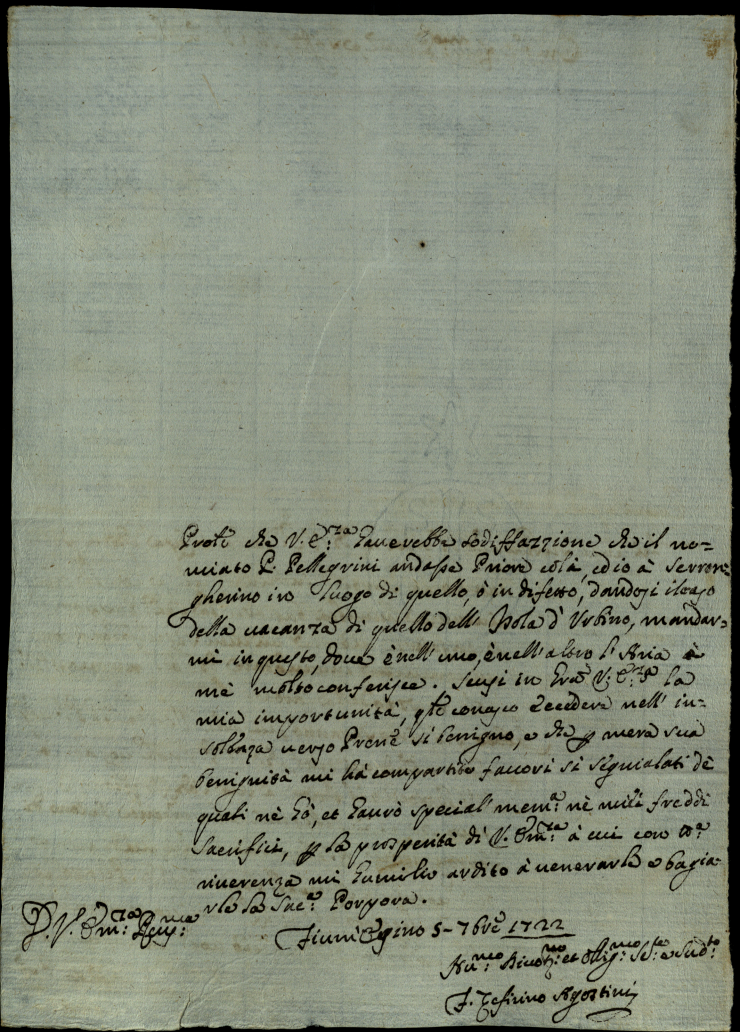 che V. E.za hauerebbe sodisfazzione che il no=
minato P. Pellegrini andasse Priore colà, ed io à Serron=
gherino in luogo di quello, ò in difetto, dandosi il caso
della uacanza di quello dell' Isola d' Urbino, mandar=
mi in questo, doue è nell' uno, è nell' altro l' Aria à
mè molto conferisce. Scusi in V. E.za la
mia importunità, conosco eccedere nell' in=
uerso si benigno, e che p mera sua
benignità mi hà compartito fauori si segnalati dè
quali nè hò, et haurò special mem.a nè miei freddi
Sacrifici, p la prosperità di V. Em.za à cui con
riuerenza mi humilio ardito à uenerarla e bagia=
rle la Sac.a Porpora.
D. V. Em.za
5 7bre 1722
et Oblig.mo
F. Agostini